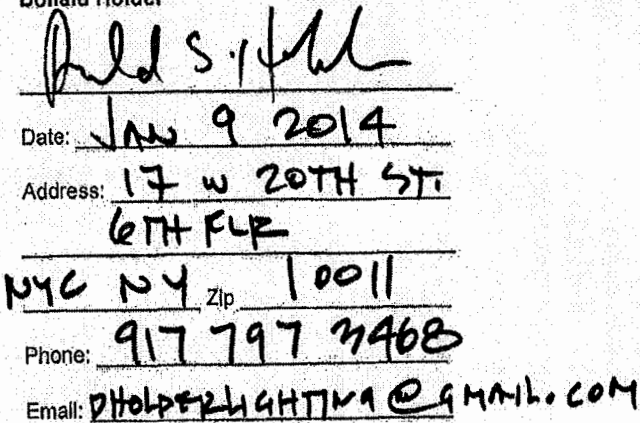 Donald Holder
Donald S. Holder
Date: JAN 9 2014
Address: 17 W 20TH ST.
6TH FLR
NYC NY Zip 10011
Phone: 917 797 3468
Email: DHOLDERLIGHTING@GMAIL.COM